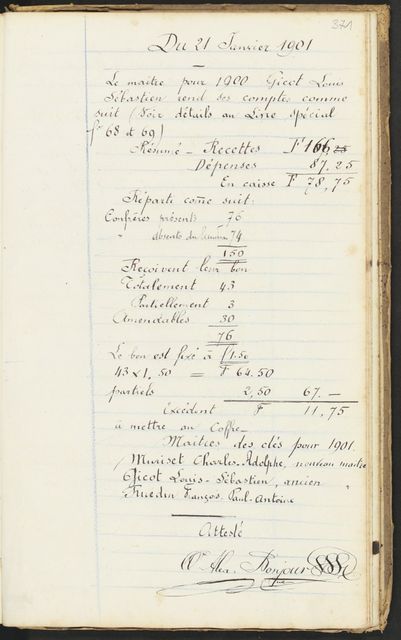 371
Du 21 Janvier 1901
Le maître pour 1900 Gicot Louis
Sébastien rend ses comptes comme
suit (Voir détails au Livre spécial
fo 68 et 69)
Résumé - Recettes F 166,
Dépenses 87.25
En caisse F 78,75
Réparti come suit:
Confrères présents 76
" absents du 74
150
Reçoivent leur bon
Totalement 43
Partiellement 3
Amendables 30
76
Le bon est fixé à f 1.50
43 x 1,50 = F 64.50
partiels 2,50 67.—
Excédent F 11,75
à mettre au Coffre
Maîtres des clés pour 1901.
Muriset Charles-Adolphe, nouveau maître
Gicot Louis-Sébastien, ancien "
Ruedin François Paul-Antoine
Attesté
Alex. Bonjour